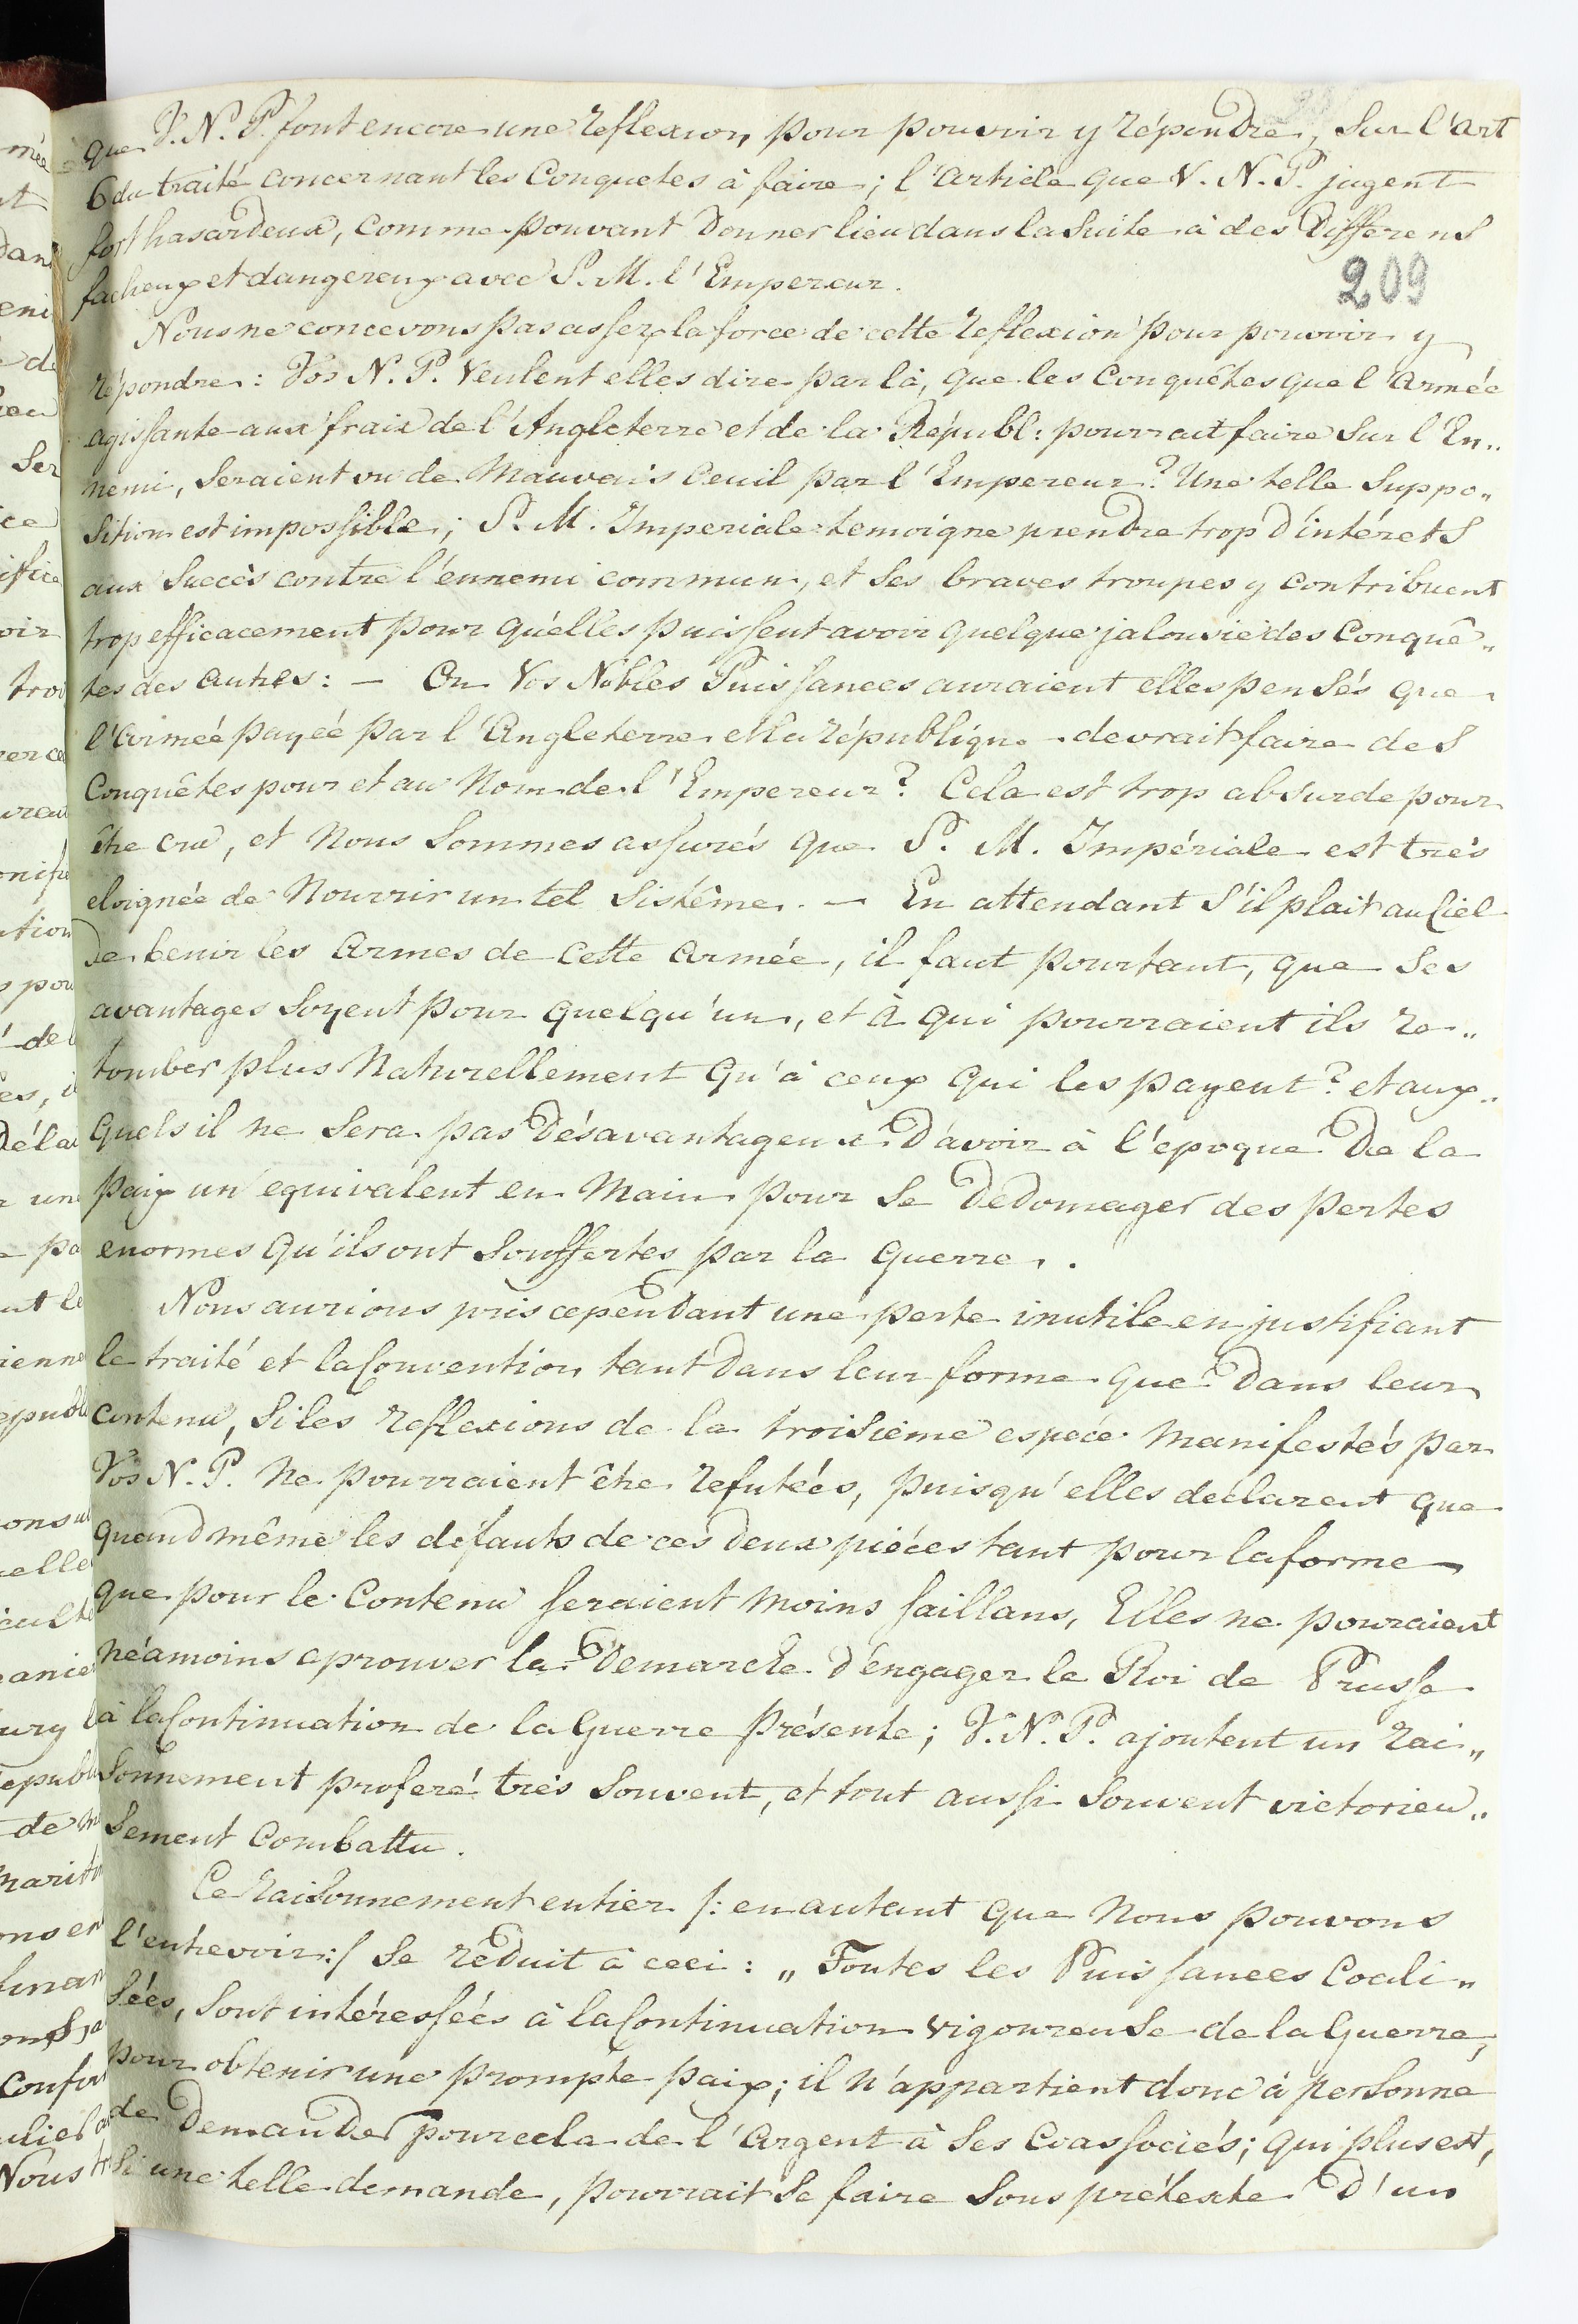 que V. N. P. font encore une reflexion, pour pouvoir y répondre, Sur l'art
6 du traité concernant les Conquetes à faire; l'article que V. N. P. jugent
fort hasardeux, comme pouvant Donner lieu dans la Suite à des Differens
facheux et dangereux avec S. M. l'Empereur.
209
Nous ne concevons pas assez la force de cette reflexion pour pouvoir y
répondre: Vos N. P. Veulent elles dire par là, que les Conquêtes que l'Armée
agissante aux fraix de l'Angleterre et de la Républ: pourrait faire Sur l'En„
nemi, Seraient vu de Mauvais Oeuil par l'Empereur? Une telle Suppo„
Sition est impossible; S. M. Imperiale temoigne prendre trop d'intérets
aux Succès contre l'ennemi commun, et Ses braves troupes y contribuent
trop efficacement pour qu'elles puissent avoir quelque jalousie des Conquê„
tes des autres: — Ou Vos Nobles Puissances auraient elles pensés que
l'Armée payée par l'Angleterre et la république devrait faire des
Conquêtes pour et au Nom de l'Empereur? Cela est trop absurde pour
être cru, et Nous Sommes assurés que S. M. Impériale est très
eloignée de Nourrir un tel Sistême. — En attendant S'il plait au Ciel
De benir les Armes de Cette Armée, il faut pourtant, que Ses
avantages Soyent pour quelqu'un, et à qui pourraient ils re„
tomber plus Naturellement qu'à ceux qui les payent? et aux„
quels il ne Sera pas Désavantageux D'avoir à l'epoque De la
Paix un equivalent en Main pour Se Dedomager des pertes
enormes qu'ils ont Souffertes par la Guerre.
Nous aurions pris cependant une perte inutile en justifiant
le traité et la Convention tant Dans leur forme que Dans leur
contenu, Si les reflexions de la troisieme espéce Manifestés par
Vos N. P. Ne pourraient être refutées, puisqu'elles declarent que
quand même les défauts de ces Deux piéces tant pour la forme
que pour le Contenu Seraient Moins Saillans, Elles ne pouraient
Néamoins aprouver la Demarche d'engager le Roi de Prusse
à la Continuation de la Guerre Présente; V. N. P. ajoutent un rai„
Sonnement proferé très Souvent, et tout aussi Souvent victorieu„
Sement Combattu.
Ce raisonnement entier /: en autant que Nous pouvons
l'entrevoir :/ Se reDuit à ceci: „ Toutes les Puissances Coali„
Sées, Sont intéressées à la Continuation vigoureuse de la Guerre,
pour obtenir une prompte paix; il n'appartient donc à personne
de Demander pour cela de l'Argent à Ses Coassociés; qui plus est,
Si une telle demande, pourrait Se faire Sous prétexte D'un